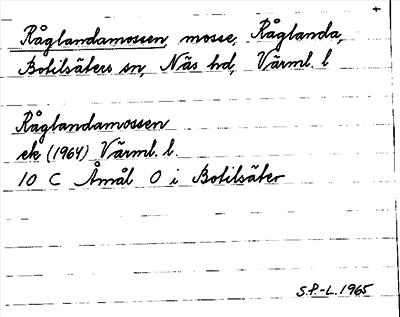 Råglandamossen, mosse, Råglanda,
Botilsäters sn, Näs hd, Värml. l
Råglandamossen
ek (1964) Värml. l.
10 C Åmål O i Botilsäter
S.P.-L. 1965